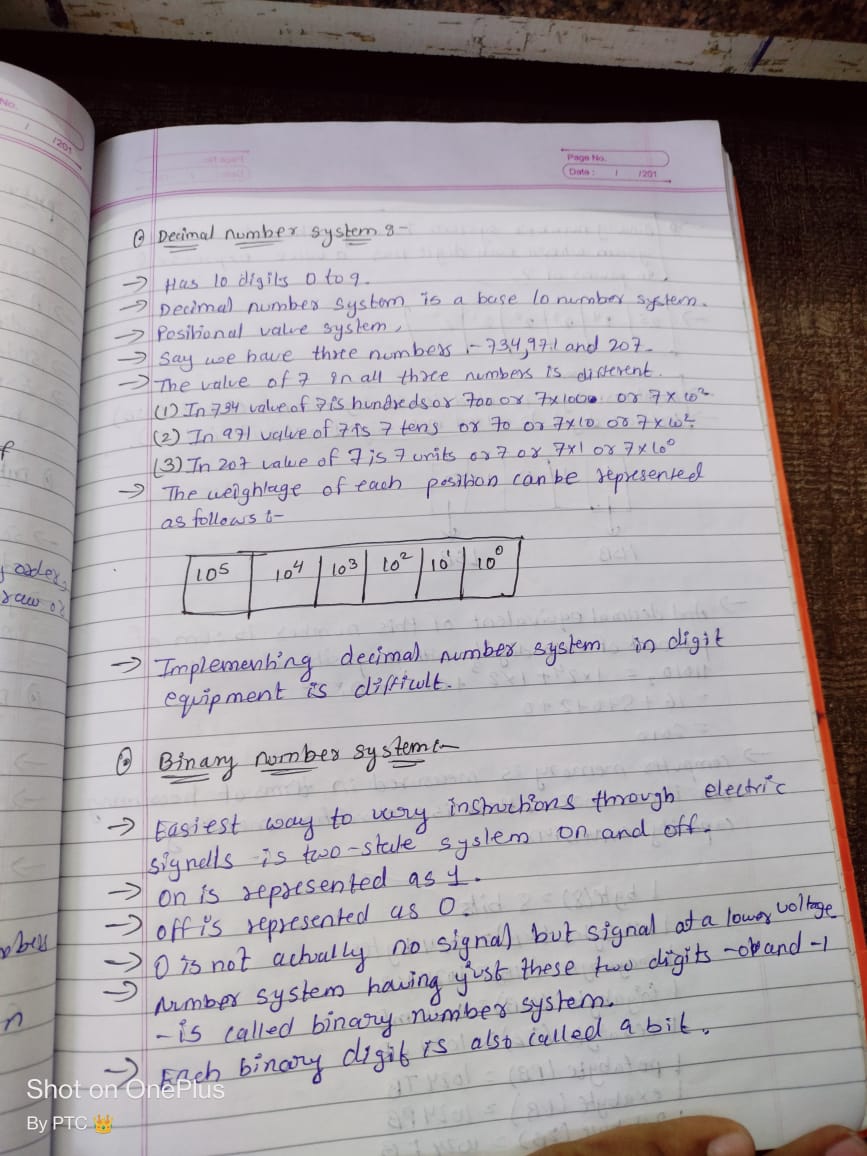 No.
/ /201
Page No.
Date : / /201
Decimal number system :-
→ Has 10 digits 0 to 9.
→ Decimal number system is a base 10 number system.
→ Positional value system,
→ Say we have three numbers :- 734,971 and 207.
→ The value of 7 in all three numbers is different.
(1) In 734 value of 7 is hundreds or 700 or 7x1000 or 7x10²
(2) In 971 value of 7 is 7 tens or 70 or 7x10 or 7x10²
(3) In 207 value of 7 is 7 units or 7 or 7x1 or 7x10⁰
→ The weightage of each position can be represented
as follows :-
10⁵ 10⁴ 10³ 10² 10¹ 10⁰
→ Implementing decimal number system in digit
equipment is difficult.
Binary number system :-
→ Easiest way to vary instructions through electric
signells is two-state system on and off.
→ On is represented as 1.
→ off is represented as 0.
→ 0 is not actually no signal but signal at a lower voltage
→ Number system having just these two digits -0 and -1
- is called binary number system.
→ Each binary digit is also called a bit.
Shot on OnePlus
By PTC